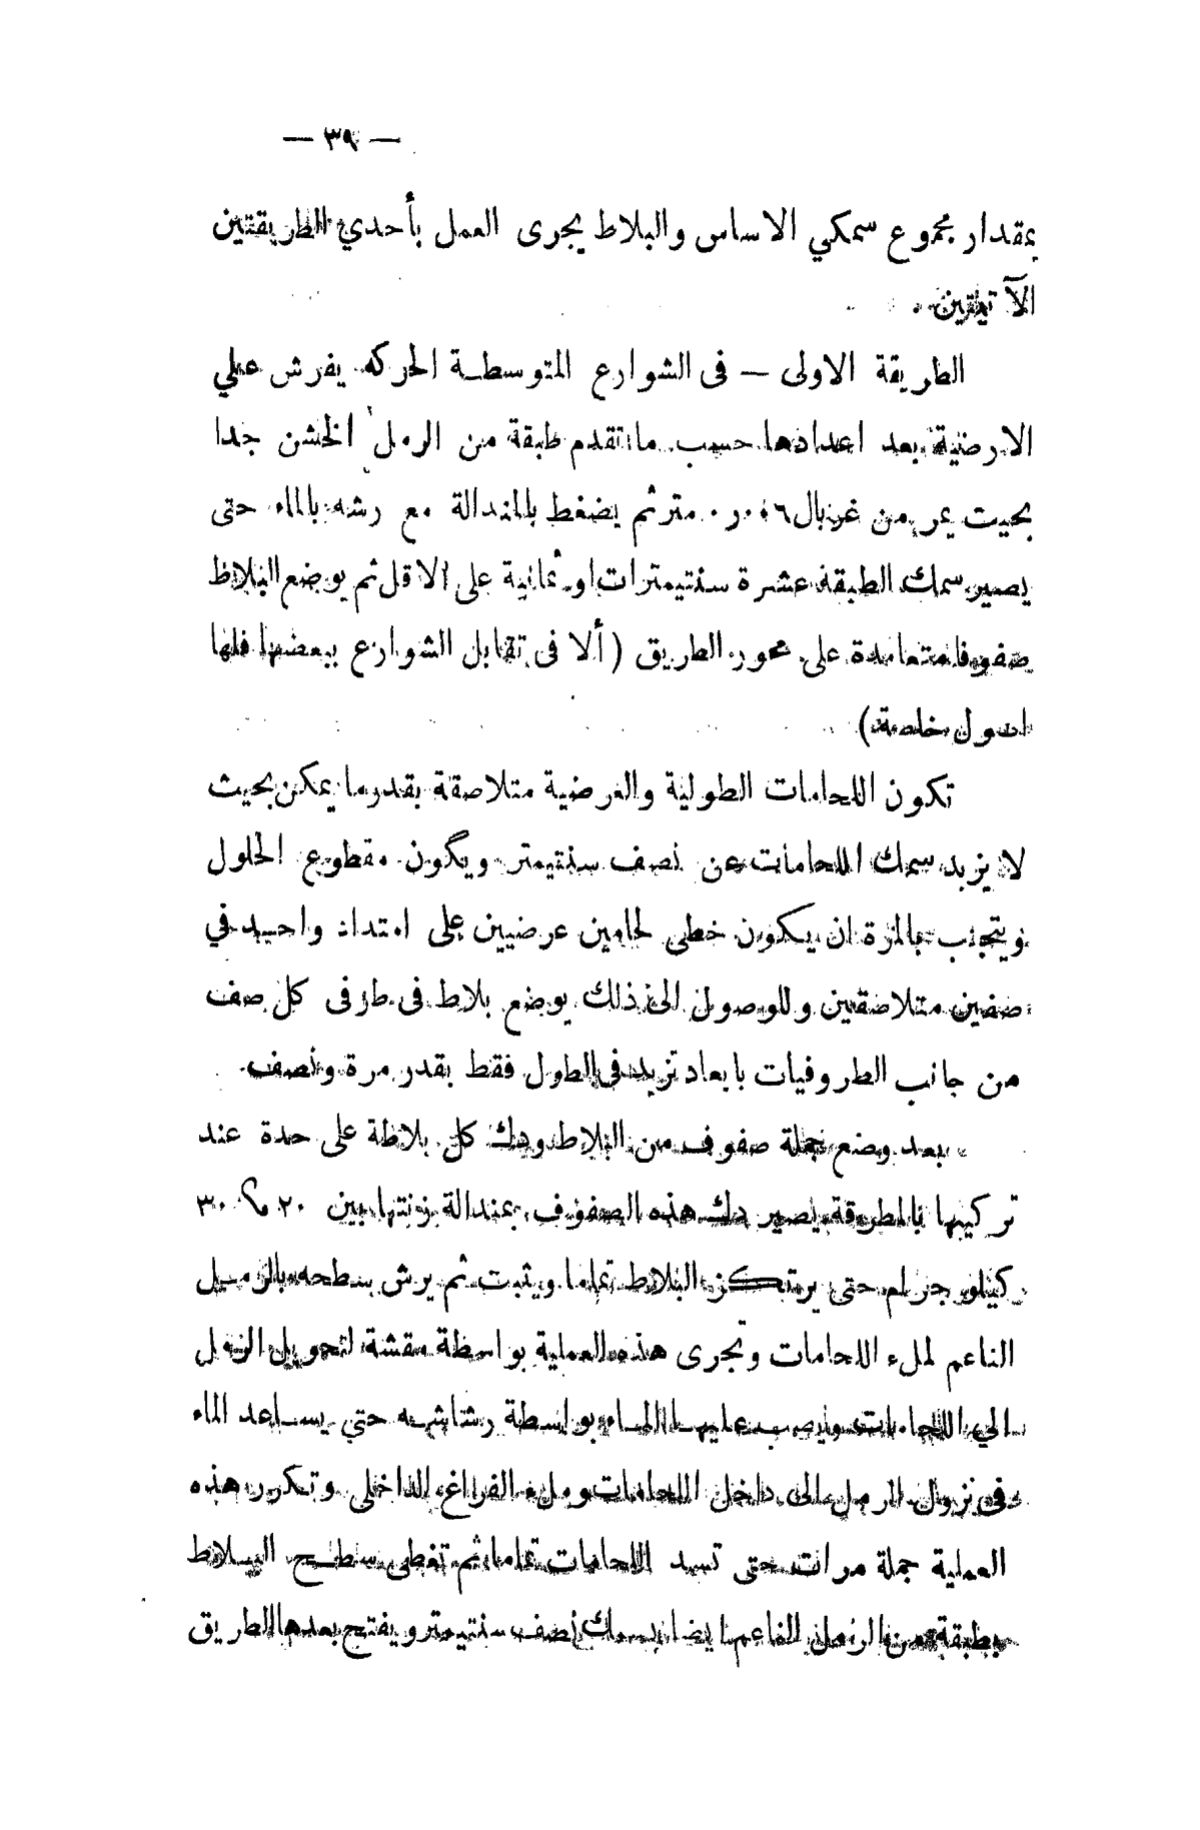 — ٣٩ —
بمقدار مجموع سمكي الاساس والبلاط يجرى العمل بأحدي الطريقتين
الآتيتين .
الطريقة الاولى — فى الشوارع المتوسطة الحركه يفرش علي
الارضية بعد اعدادها حسب ما تقدم طبقة من الرمل الخشن جدا
بحيت يمر من غربال ٠٫٠٠٦ متر ثم يضغط بالمندالة مع رشه بالماء حتى
يصير سمك الطبقة عشرة سنتيمترات او ثمانية على الاقل ثم يوضع البلاط
صفوفا متعامدة على محور الطريق ( ألا فى تقابل الشوارع ببعضها فلها
اصول خاصة)
تكون اللحامات الطولية والعرضية متلاصقة بقدر ما يمكن بحيث
لا يزيد سمك اللحامات عن نصف سنتيمتر ويكون مقطوع الحلول
ويتجنب بالمرة ان يكون خطى لحامين عرضيين على امتداد واحد في
صفين متلاصقين وللوصول الى ذلك يوضع بلاط فى طرفى كل صف
من جانب الطروفيات بابعاد تزيد فى الطول فقط بقدر مرة ونصف
بعد وضع جملة صفوف من البلاط ودك كل بلاطة على حدة عند
تركيبها بالمطرقة يصير دك هذه الصفوف بمندالة زنتها بين ٢٠ و ٣٠
كيلو جرام حتى يرتكز البلاط تماما ويثبت ثم يرش سطحه بالرمل
الناعم لملء اللحامات وتجرى هذه العملية بواسطة مقشة لتحويل الرمل
الي اللحامات ويصب عليها الماء بواسطة رشاشه حتي يساعد الماء
فى نزول الرمل الى داخل اللحامات وملء الفراغ الداخلى وتكرر هذه
العملية جملة مرات حتى تسد اللحامات تماما ثم تغطى سطح البلاط
بطبقة من الرمل الناعم ايضا بسمك نصف سنتيمتر ويفتح بعدها الطريق